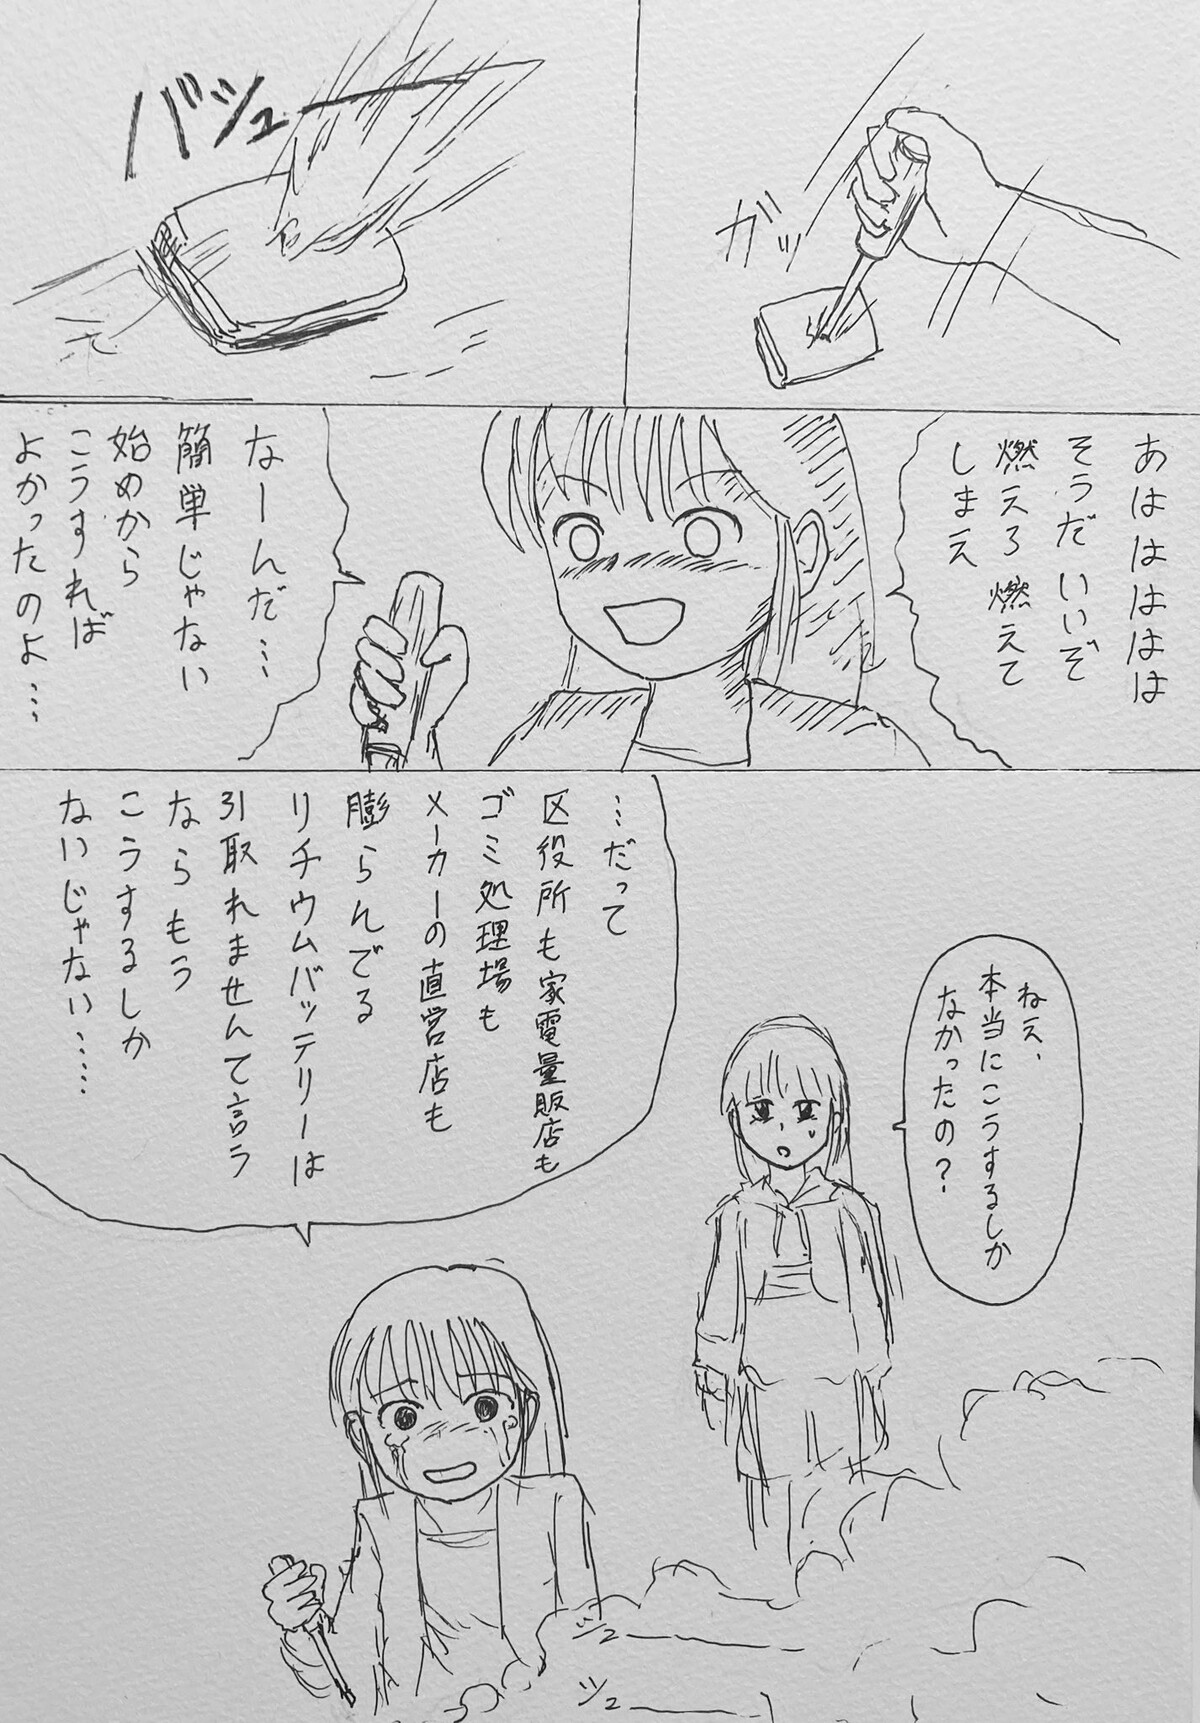 ガッ
バシュー
あはははははは
そうだいいぞ
燃えろ燃えて
しまえ
なーんだ…
簡単じゃない
始めから
こうすれば
よかったのよ…
ねえ、
本当にこうするしか
なかったの?
…だって
区役所も家電量販店も
ゴミ処理場も
メーカーの直営店も
膨らんでる
リチウムバッテリーは
引取れませんて言う
ならもう
こうするしか
ないじゃない……
シュー
シュー